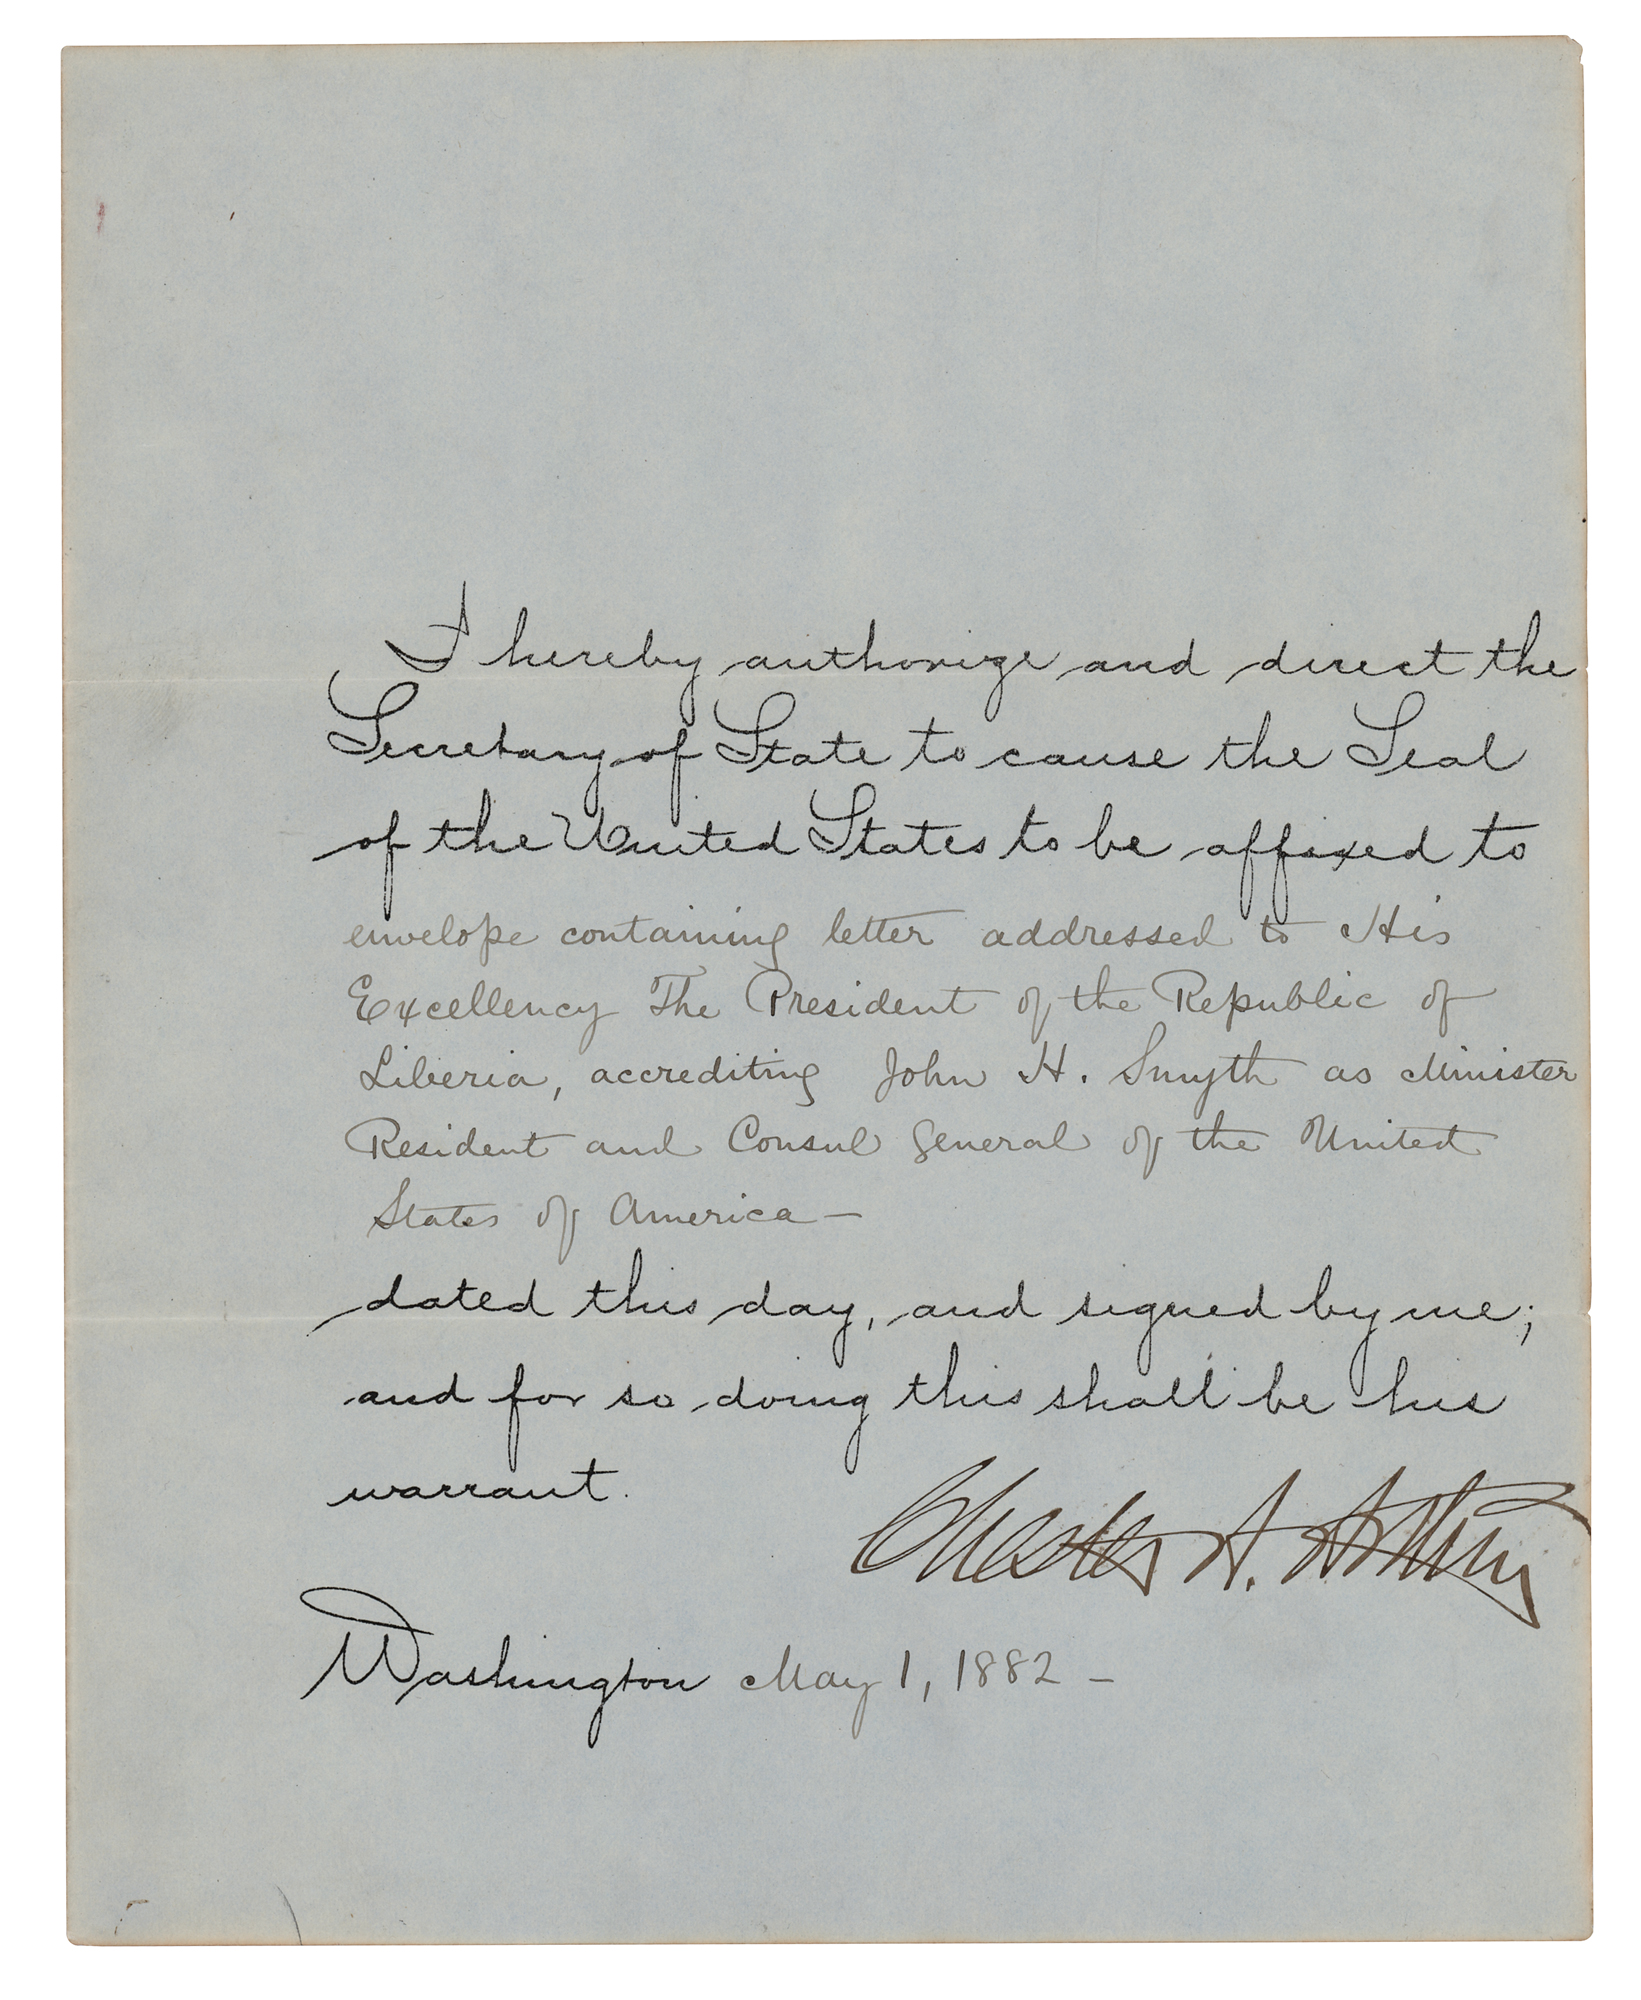 I hereby authorize and direct the
Secretary of State to cause the Seal
of the United States to be affixed to
envelope containing letter addressed to His
Excellency The President of the Republic of
Liberia, accrediting John H. Smyth as Minister
Resident and Consul General of the United
States of America —
dated this day, and signed by me;
and for so doing this shall be his
warrant.
Chester A. Arthur
Washington May 1, 1882 —